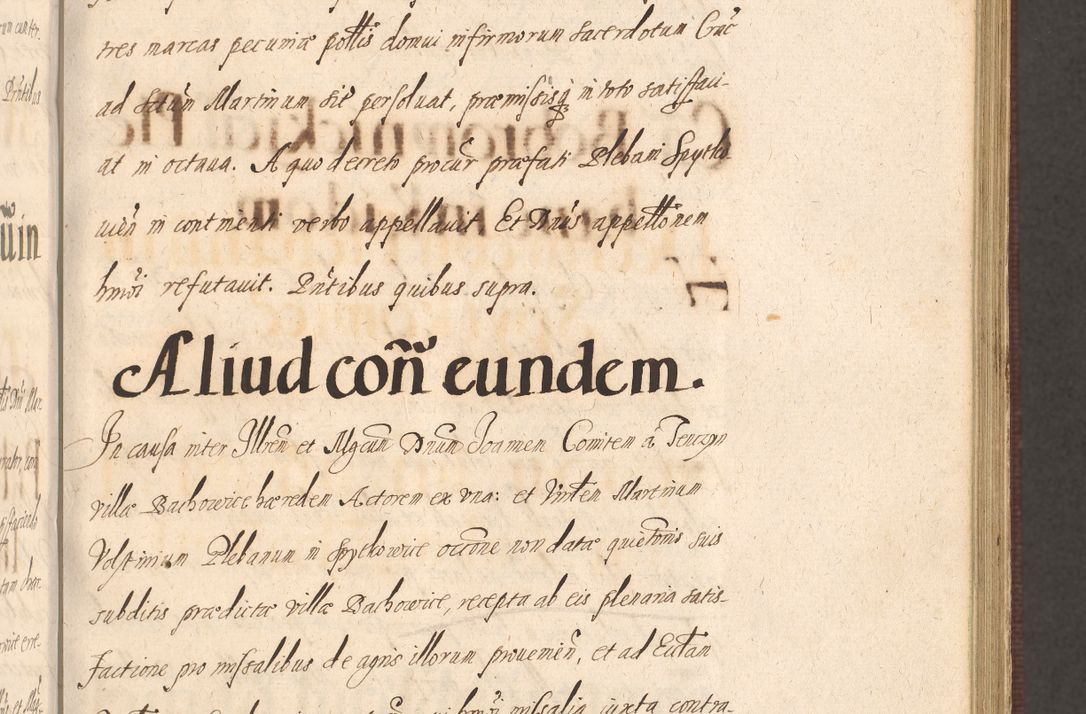 tres marcas pecuniæ pottis domui infirmorum sacerdotum Crac
ad Sctum Martinum sit persoluat, præmissisq in toto satisfaci-
at in octaua. A quo decreto procur præfati Plebani Spytko
uien in continenti verbo appellauit. Et Dnus appettonem
hmoi refutauit. Pntibus quibus supra.
Aliud con eundem.
In causa inter Illrem et Mgcum Dnum Joannem Comitem a Tenczyn
villæ Bachowice hæredem Actorem ex vna: et Virtem Martinum
Plebanum in Spytkowice occone non datæ quietonis suis
subditis prædictæ villæ Bachowice, recepta ab eis plenaria satis-
factione pro missalibus de agris illorum prouenien, et ad
hmoi missalia iuxta contra-